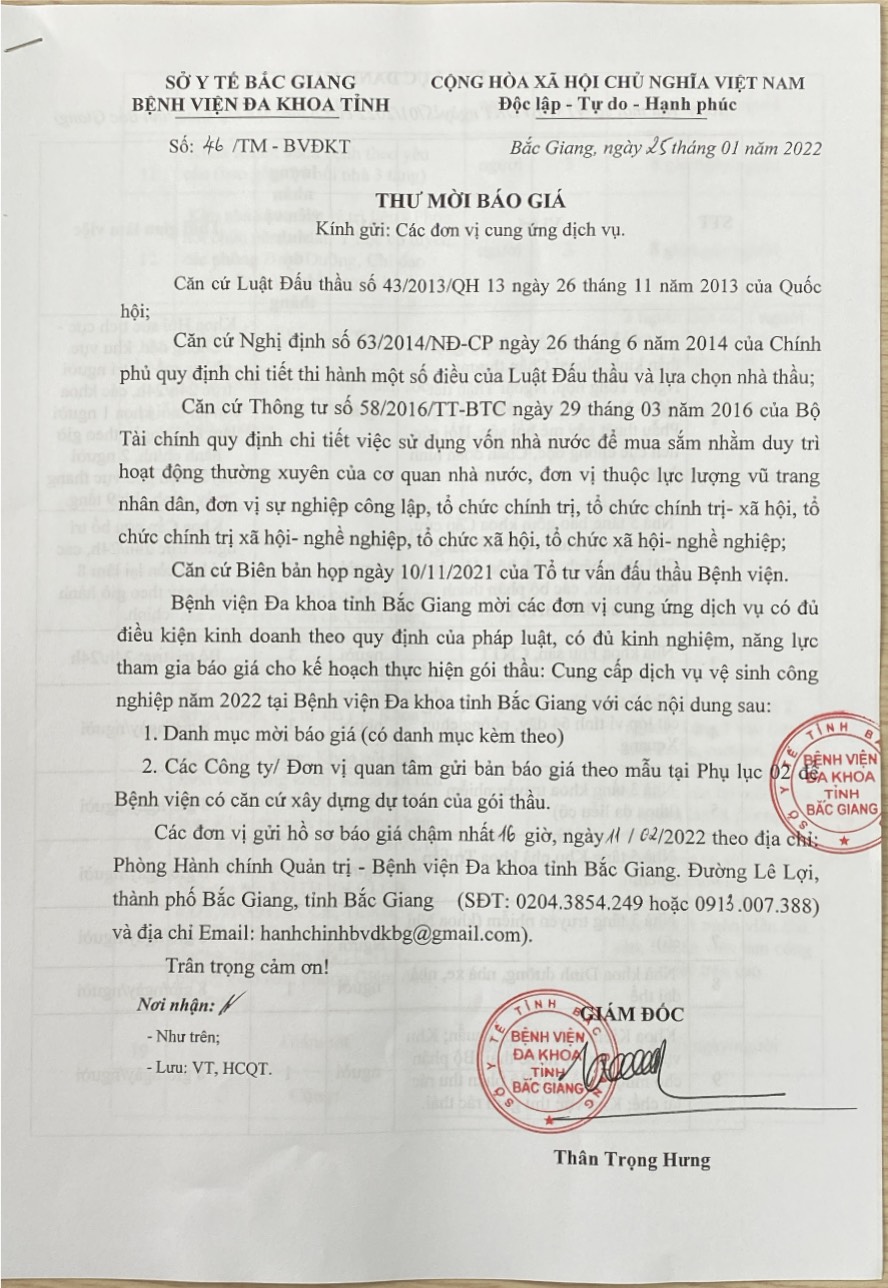 SỞ Y TẾ BẮC GIANG
BỆNH VIỆN ĐA KHOA TỈNH
CỘNG HÒA XÃ HỘI CHỦ NGHĨA VIỆT NAM
Độc lập - Tự do - Hạnh phúc
Số: 46 /TM - BVĐKT
Bắc Giang, ngày 25 tháng 01 năm 2022
THƯ MỜI BÁO GIÁ
Kính gửi: Các đơn vị cung ứng dịch vụ.
Căn cứ Luật Đấu thầu số 43/2013/QH 13 ngày 26 tháng 11 năm 2013 của Quốc
hội;
Căn cứ Nghị định số 63/2014/NĐ-CP ngày 26 tháng 6 năm 2014 của Chính
phủ quy định chi tiết thi hành một số điều của Luật Đấu thầu và lựa chọn nhà thầu;
Căn cứ Thông tư số 58/2016/TT-BTC ngày 29 tháng 03 năm 2016 của Bộ
Tài chính quy định chi tiết việc sử dụng vốn nhà nước để mua sắm nhằm duy trì
hoạt động thường xuyên của cơ quan nhà nước, đơn vị thuộc lực lượng vũ trang
nhân dân, đơn vị sự nghiệp công lập, tổ chức chính trị, tổ chức chính trị- xã hội, tổ
chức chính trị xã hội- nghề nghiệp, tổ chức xã hội, tổ chức xã hội- nghề nghiệp;
Căn cứ Biên bản họp ngày 10/11/2021 của Tổ tư vấn đấu thầu Bệnh viện.
Bệnh viện Đa khoa tỉnh Bắc Giang mời các đơn vị cung ứng dịch vụ có đủ
điều kiện kinh doanh theo quy định của pháp luật, có đủ kinh nghiệm, năng lực
tham gia báo giá cho kế hoạch thực hiện gói thầu: Cung cấp dịch vụ vệ sinh công
nghiệp năm 2022 tại Bệnh viện Đa khoa tỉnh Bắc Giang với các nội dung sau:
1. Danh mục mời báo giá (có danh mục kèm theo)
2. Các Công ty/ Đơn vị quan tâm gửi bản báo giá theo mẫu tại Phụ lục 02 để
Bệnh viện có căn cứ xây dựng dự toán của gói thầu.
Các đơn vị gửi hồ sơ báo giá chậm nhất 16 giờ, ngày 11 / 02/2022 theo địa chỉ:
Phòng Hành chính Quản trị - Bệnh viện Đa khoa tỉnh Bắc Giang. Đường Lê Lợi,
thành phố Bắc Giang, tỉnh Bắc Giang (SĐT: 0204.3854.249 hoặc 0913.007.388)
và địa chỉ Email: hanhchinhbvdkbg@gmail.com).
Trân trọng cảm ơn!
Nơi nhận:
- Như trên;
- Lưu: VT, HCQT.
GIÁM ĐỐC
SỞ Y TẾ TỈNH BẮC GIANG
BỆNH VIỆN
ĐA KHOA
TỈNH
BẮC GIANG
Thân Trọng Hưng
SỞ Y TẾ TỈNH BẮ
BỆNH VIỆN
ĐA KHOA
TỈNH
BẮC GIANG